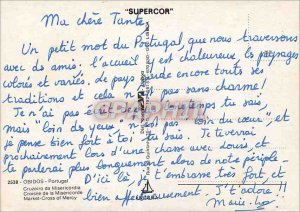 "SUPERCOR"
Ma chère Tante,
Un petit mot du Portugal, que nous traversons
avec des amis. L'accueil y est chaleureux, les paysages
colorés et variés, le pays garde encore toutes ses
traditions et cela n'est pas sans charme!
Je n'ai pas écrit temps, tu sais,
mais "loin des yeux" n'est pas "loin du cœur", et je
pense bien fort à toi tu sais. Je te verrai
prochainement lors d'une chasse avec doute, et
te parlerai plus longuement alors de notre périple-
D'ici là, je t'embrasse très fort, et
bien affectueusement. J't'adore!!
2538 - OBIDOS - Portugal
Cruzeiro da Misericórdia
Croisée de la Miséricorde
Market-Cross of Mercy